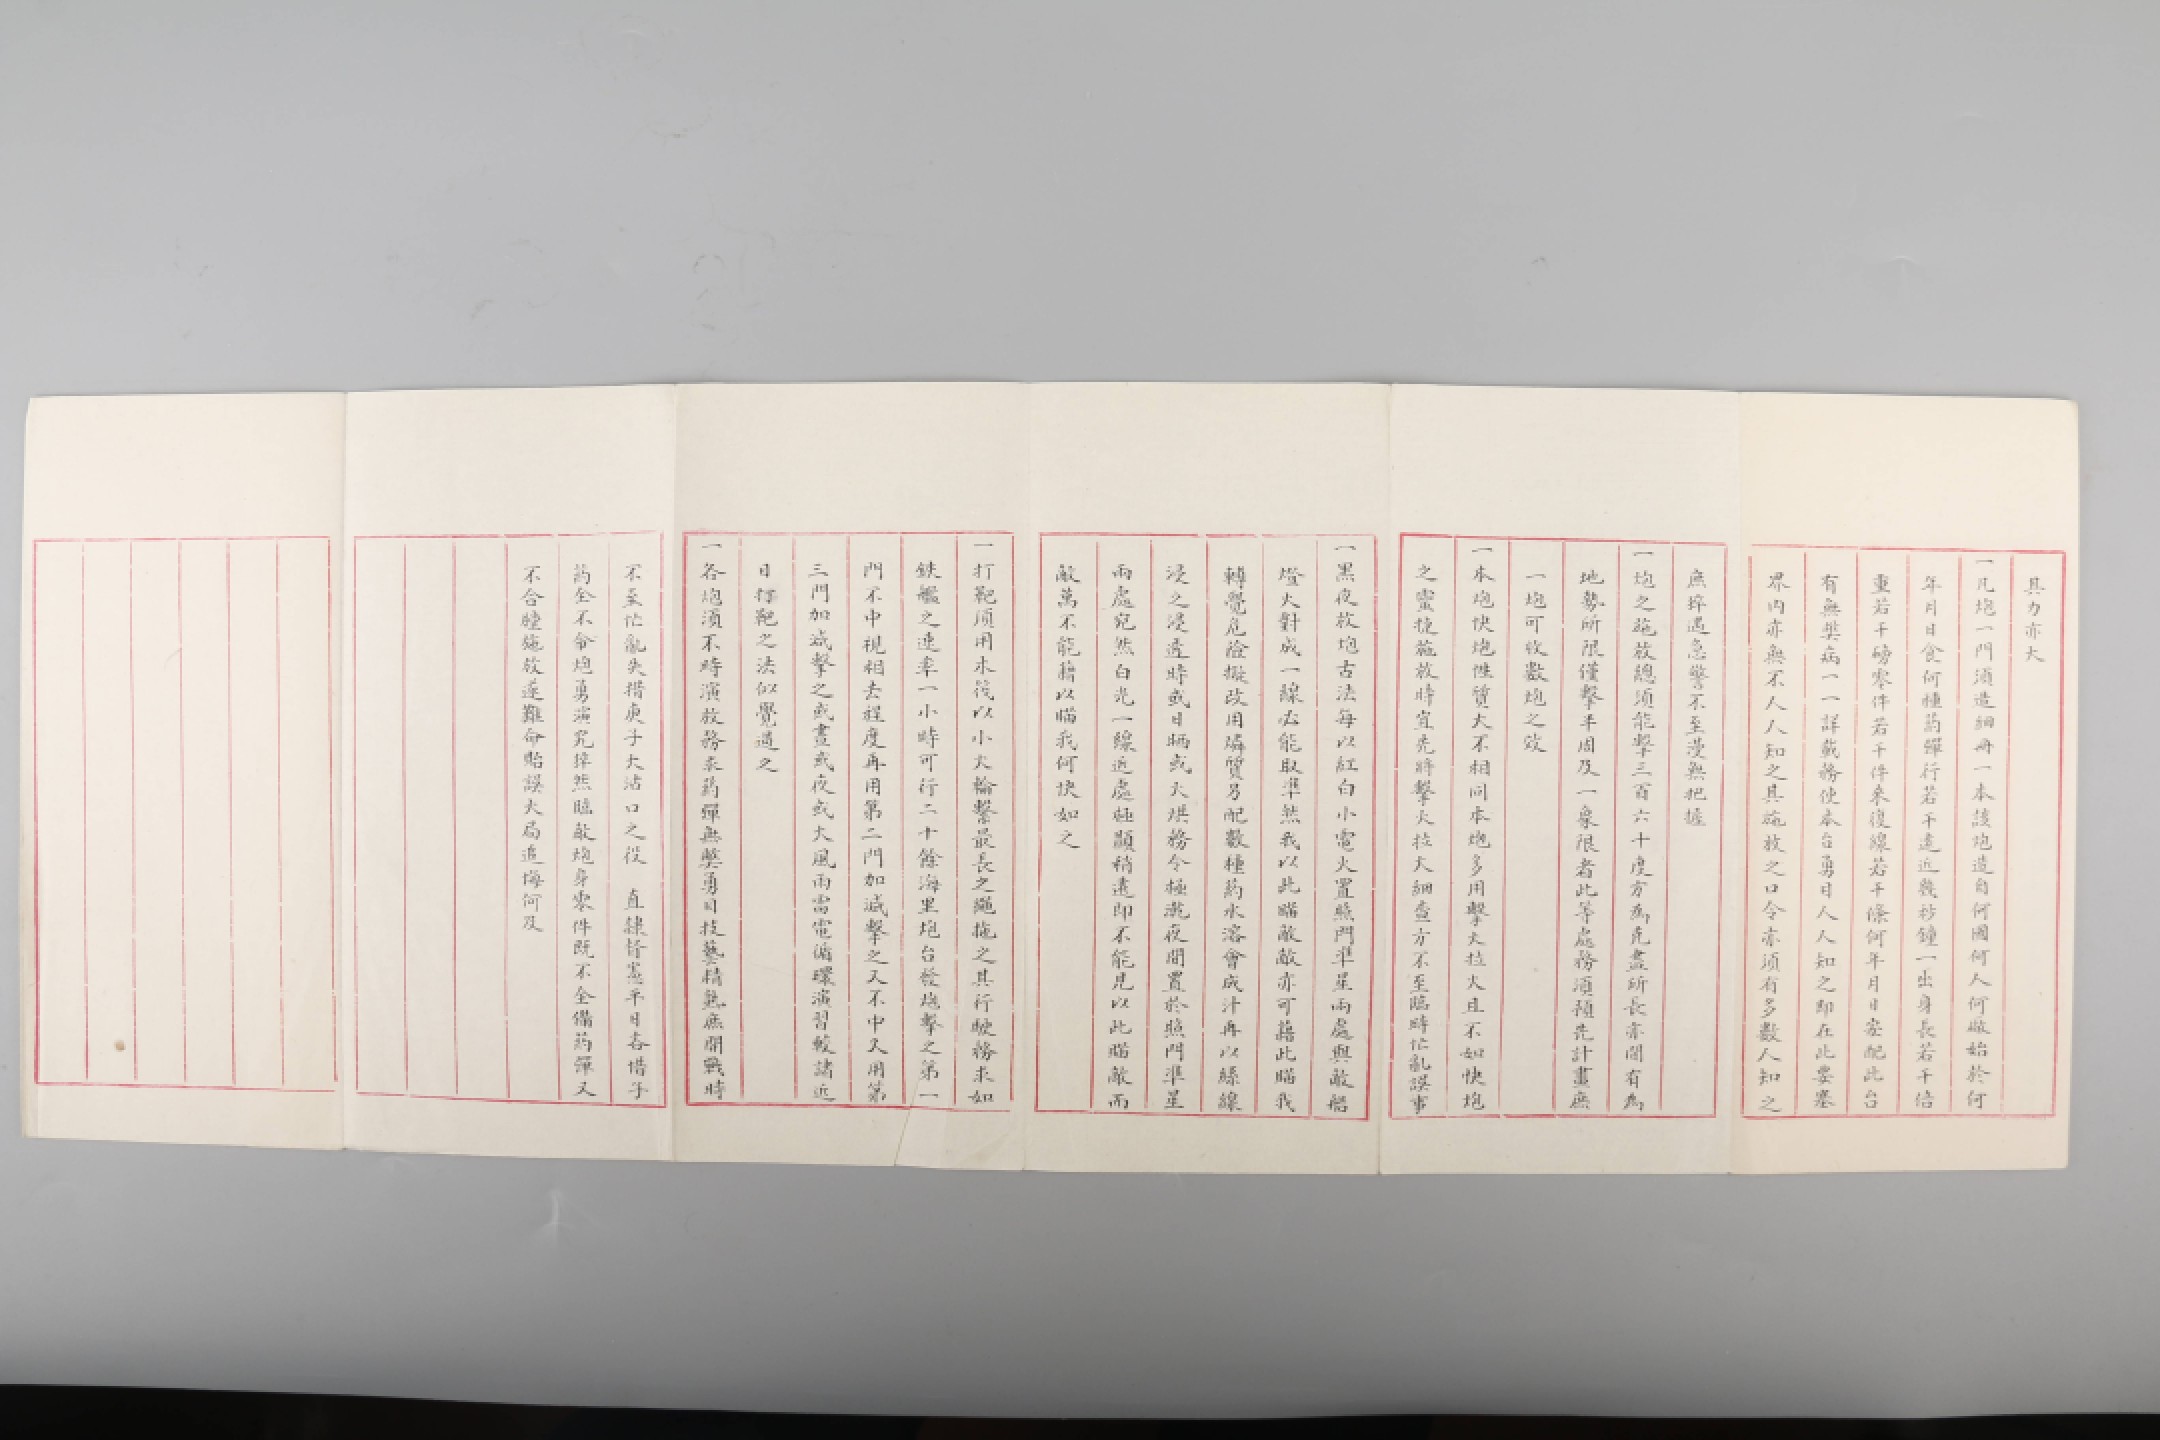 其力亦大
一凡炮一門須造細冊一本該炮造自何國何人何廠始於何
年月日食何種葯彈行若干遠近幾秒鐘一出身長若干倍
重若干磅零件若干件來復線若干條何年月日安配此台
有無獘病一一詳載務使本台勇目人人知之即在此要塞
界內亦無不人人知之其施放之口令亦須有多數人知之
庶猝遇急警不至漫無把握
一炮之施放總須能擊三百六十度方為克盡所長亦間有為
地勢所限僅擊半周及一象限者此等處務須預先計畫庶
一炮可收數炮之效
一本炮快炮性質大不相同本炮多用擊火拉火且不如快炮
之靈捷施放時宜先將擊火拉火細查方不至臨時忙亂誤事
一黑夜放炮古法每以紅白小電火置照門準星兩處與敵船
燈火對成一線必能取準然我以此瞄敵敵亦可藉此瞄我
轉覺危險擬改用燐質另配數種葯水溶會成汁再以綠線
浸之浸透時或日晒或火烘務令極乾夜間置於照門準星
兩處宛然白光一線近處極顯稍遠即不能見以此瞄敵而
敵萬不能藉以瞄我何快如之
一打靶須用木筏以小火輪繫最長之繩拖之其行駛務求如
鉄艦之速率一小時可行二十餘海里炮台發炮擊之第一
門不中視相去程度再用第二門加減擊之又不中又用第
三門加減擊之或晝或夜或大風雨雷電循環演習較諸近
日擇靶之法似覺過之
一各炮須不時演放務求葯彈無獘勇目技藝精熟庶開戰時
不至忙亂失措庚子大沽口之役 直隸督憲平日吝惜子
葯全不令炮勇演究猝然臨敵炮身零件既不全備葯彈又
不合膛施放遂難命貽誤大局追悔何及